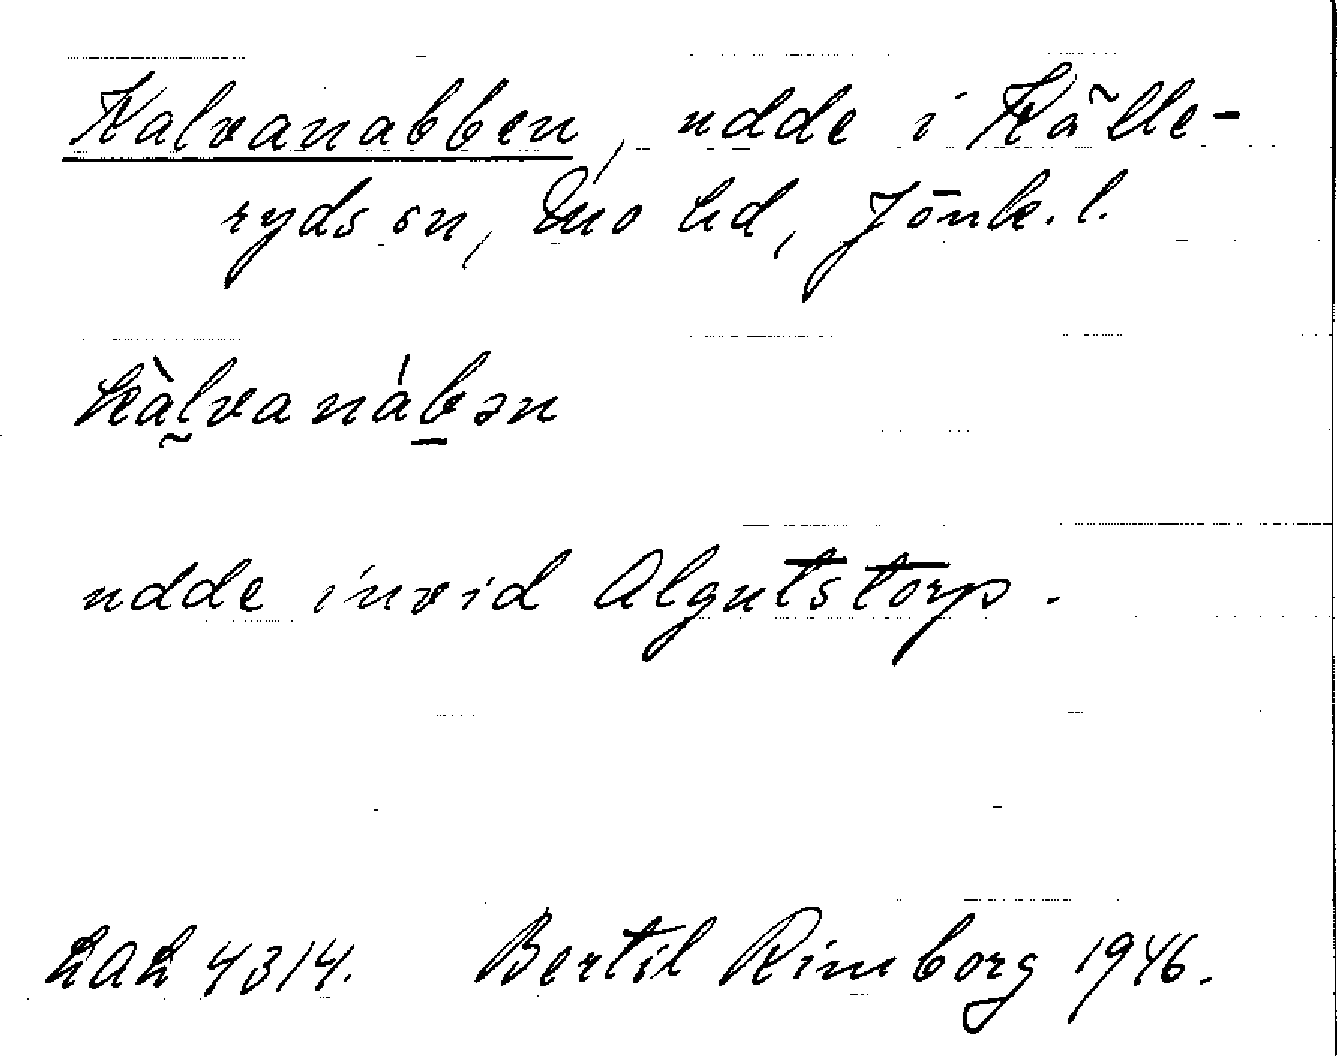 Kalvanabben, udde i Källe-
ryds sn, Mo hd, Jönk. l.
kàl̰vaná​b̲ən
udde invid Algutstorp.
LAL 4314. Bertil Rimborg 1946.